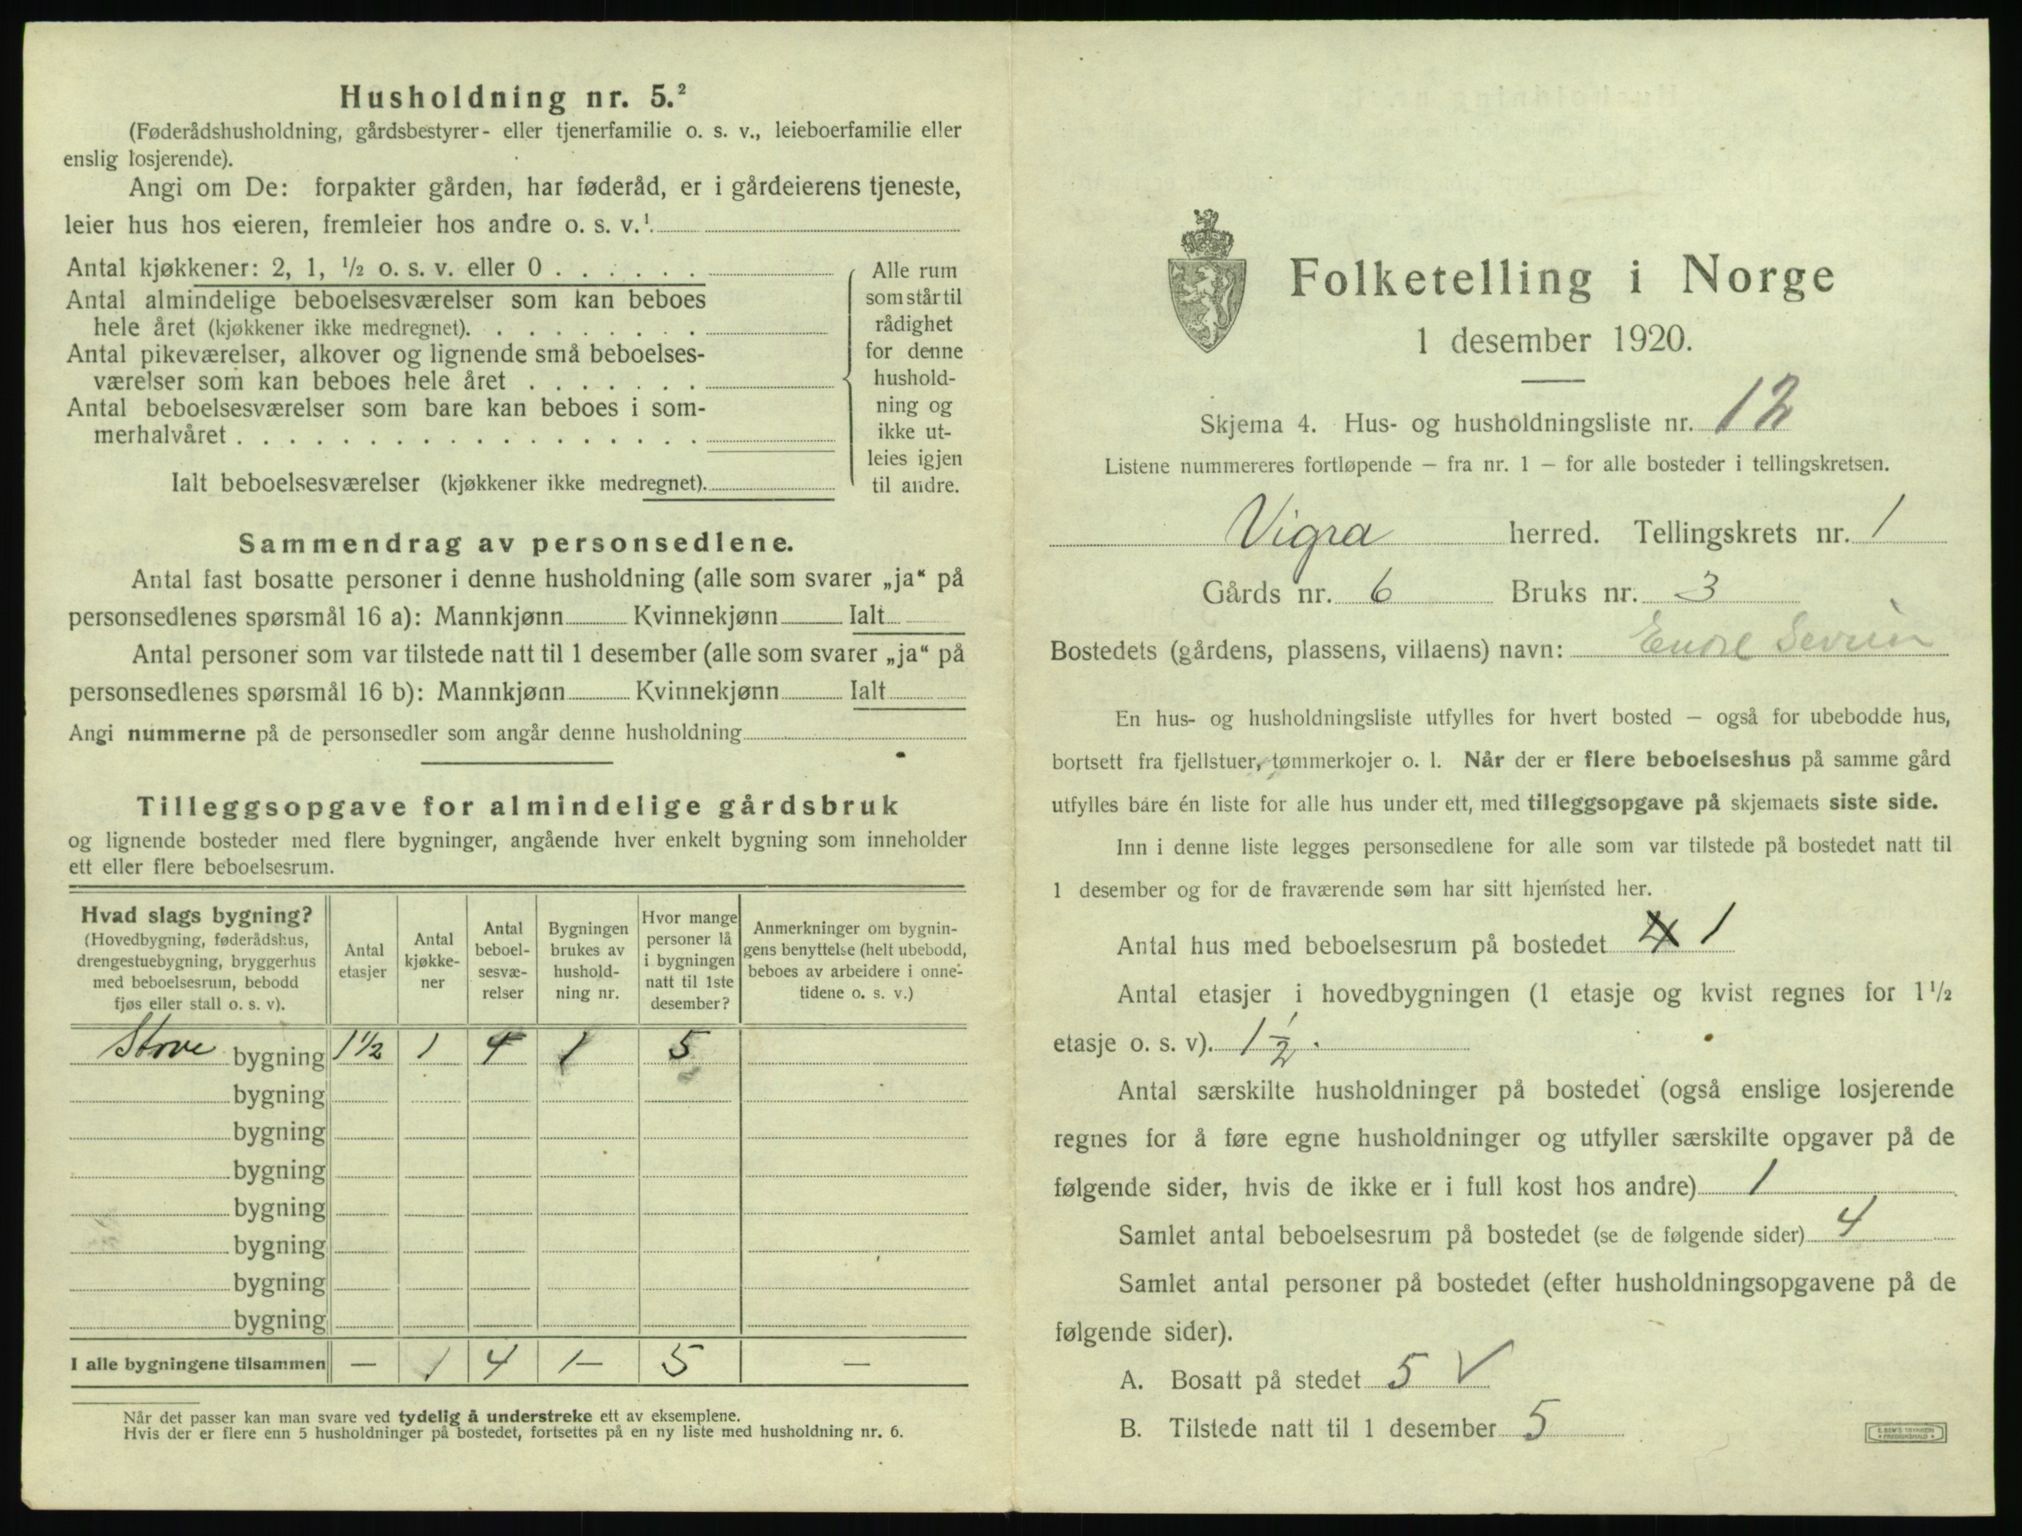 Husholdning nr. 5.²
(Føderådshusholdning, gårdsbestyrer- eller tjenerfamilie o. s. v., leieboerfamilie eller
enslig losjerende).
Angi om De: forpakter gården, har føderåd, er i gårdeierens tjeneste,
leier hus hos eieren, fremleier hos andre o. s. v.¹
Antal kjøkkener: 2, 1, ½ o. s. v. eller 0
Antal almindelige beboelsesværelser som kan beboes
hele året (kjøkkener ikke medregnet).
Antal pikeværelser, alkover og lignende små beboelses-
værelser som kan beboes hele året
Antal beboelsesværelser som bare kan beboes i som-
merhalvåret
Ialt beboelsesværelser (kjøkkener ikke medregnet).
Alle rum
som står til
rådighet
for denne
hushold-
ning og
ikke ut-
leies igjen
til andre.
Sammendrag av personsedlene.
Antal fast bosatte personer i denne husholdning (alle som svarer „ja“ på
personsedlenes spørsmål 16 a): Mannkjønn Kvinnekjønn Ialt
Antal personer som var tilstede natt til 1 desember (alle som svarer „ja“ på
personsedlenes spørsmål 16 b): Mannkjønn Kvinnekjønn Ialt
Angi nummerne på de personsedler som angår denne husholdning
Tilleggsopgave for almindelige gårdsbruk
og lignende bosteder med flere bygninger, angående hver enkelt bygning som inneholder
ett eller flere beboelsesrum.
Hvad slags bygning?
(Hovedbygning, føderådshus,
drengestuebygning, bryggerhus
med beboelsesrum, bebodd
fjøs eller stall o. s. v).
Antal
etasjer
Antal
kjøkke-
ner
Antal
beboel-
sesvæ-
relser
Bygningen
brukes av
hushold-
ning nr.
Hvor mange
personer lå
i bygningen
natt til 1ste
desember?
Anmerkninger om bygnin-
gens benyttelse (helt ubebodd,
beboes av arbeidere i onne-
tidene o. s. v.)
Stove bygning 1½ 1 4 1 5
bygning
bygning
bygning
bygning
bygning
bygning
bygning
I alle bygningene tilsammen — 1 4 1— 5 —
Når det passer kan man svare ved tydelig å understreke ett av eksemplene.
Hvis der er flere enn 5 husholdninger på bostedet, fortsettes på en ny liste med husholdning nr. 6.
Folketelling i Norge
1 desember 1920.
Skjema 4. Hus- og husholdningsliste nr. 12
Listene nummereres fortløpende – fra nr. 1 – for alle bosteder i tellingskretsen.
Vigra herred. Tellingskrets nr. 1
Gårds nr. 6 Bruks nr. 3
Bostedets (gårdens, plassens, villaens) navn: Endre Sevrin
En hus- og husholdningsliste utfylles for hvert bosted – også for ubebodde hus,
bortsett fra fjellstuer, tømmerkojer o. l. Når der er flere beboelseshus på samme gård
utfylles bare én liste for alle hus under ett, med tilleggsopgave på skjemaets siste side.
Inn i denne liste legges personsedlene for alle som var tilstede på bostedet natt til
1 desember og for de fraværende som har sitt hjemsted her.
Antal hus med beboelsesrum på bostedet 4 1
Antal etasjer i hovedbygningen (1 etasje og kvist regnes for 1½
etasje o. s. v). 1½.
Antal særskilte husholdninger på bostedet (også enslige losjerende
regnes for å føre egne husholdninger og utfyller særskilte opgaver på de
følgende sider, hvis de ikke er i full kost hos andre) 1
Samlet antal beboelsesrum på bostedet (se de følgende sider) 4
Samlet antal personer på bostedet (efter husholdningsopgavene på de
følgende sider).
A. Bosatt på stedet 5 V
B. Tilstede natt til 1 desember 5